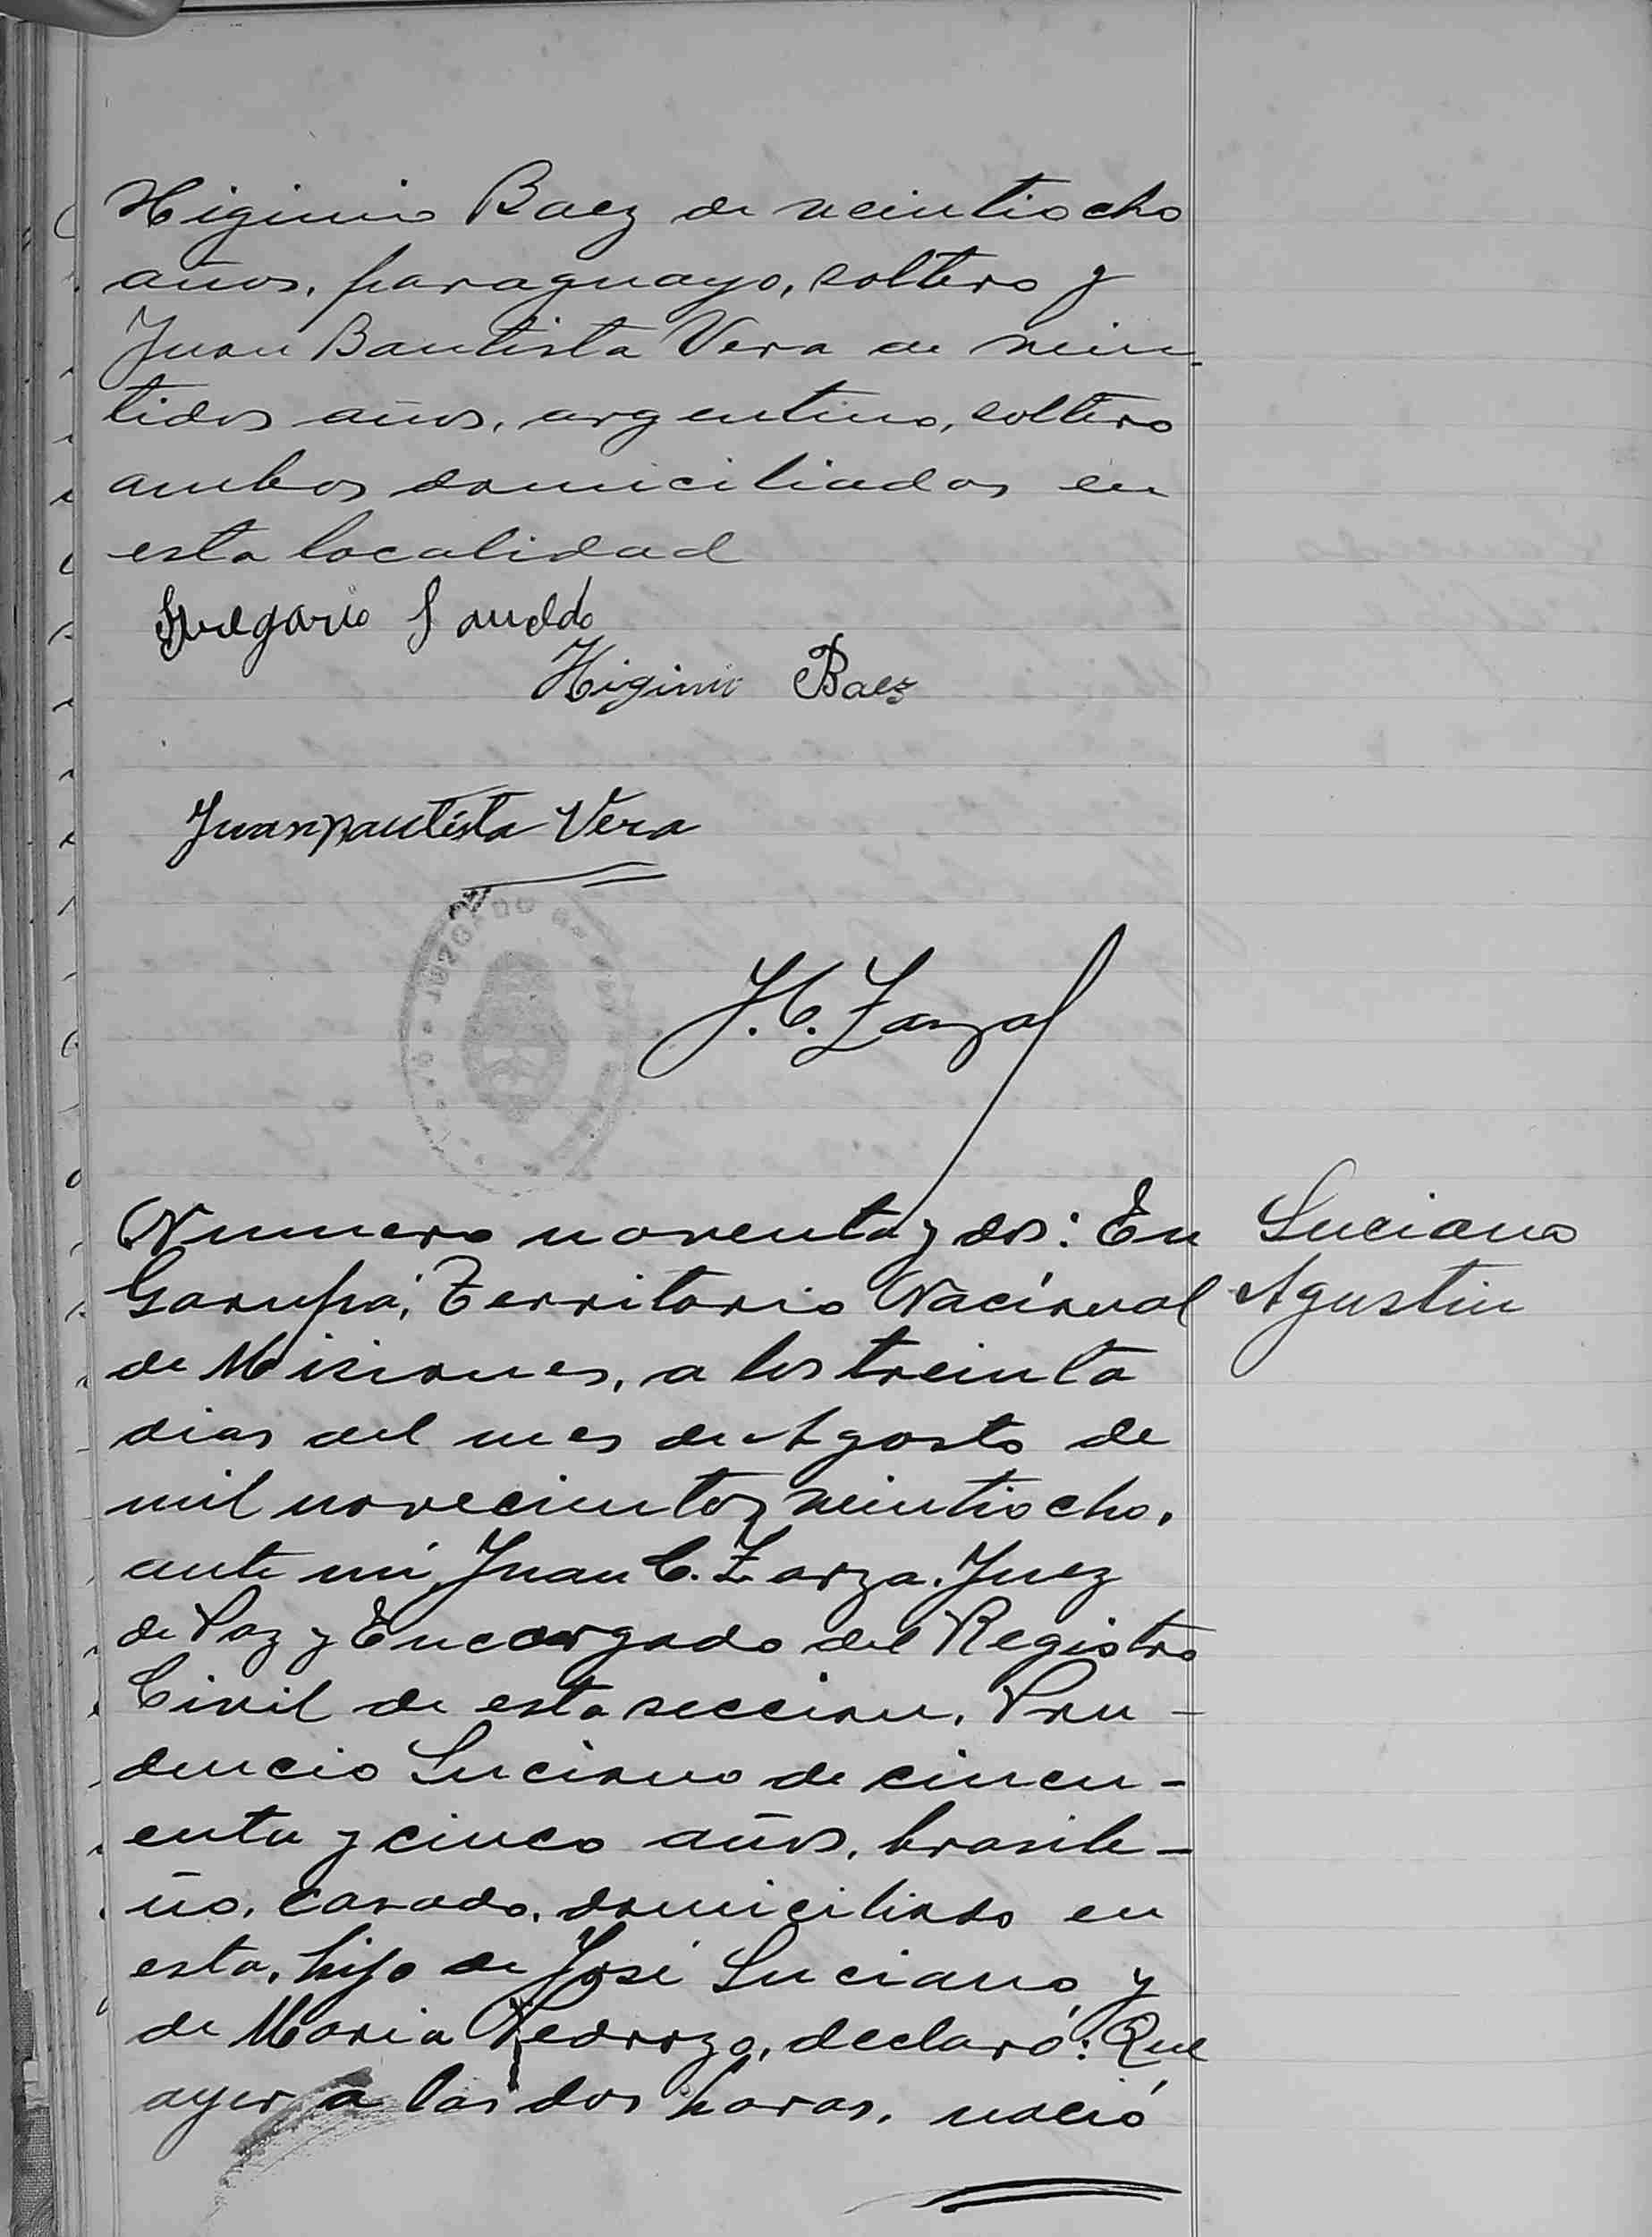 Higinio Baez de veintiocho
años, paraguayo, soltero y
Juan Bautista Vera de vein-
tidos años, argentino, soltero
ambos domiciliados en
esta localidad
Higinio Baez
Juan Bautista Vera
JUZGADO
J. C. Zarza
Numero noventa y dos: En
Garupá, Territorio Nacional
de Misiones, a los treinta
dias del mes de Agosto de
mil novecientos veintiocho,
ante mi, Juan C. Zarza, Juez
de Paz y Encargado del Registro
Civil de esta seccion, Pru-
dencio Luciano de cincu-
enta y cinco años, brasile-
ño, casado, domiciliado en
esta, hijo de José Luciano y
de Maria Pedrozo, declaró: Que
ayer a las dos horas, nació
Luciano
Agustin